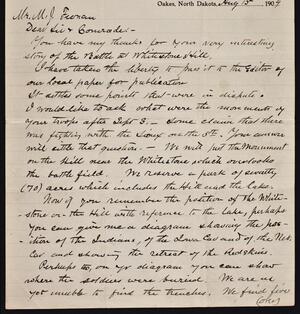 Oakes, North Dakota, Aug 15 1909
Mr. M. J. Feenan
Dear Sir & Comrade:-
You have my thanks for your very interesting
story of the Battle at Whitestone Hill.
I have taken the liberty to pass it to the Editor of
our local paper for publication.
It settles some points that were in dispute.
I would like to ask what were the movements of
your troops after Sept 3. - Some claim that there
was fighting with the Sioux on the 5th. Your answer
will settle that question. - We will put the Monument
on the Hill near the Whitestone, which overlooks
the battle field. We reserve a park of seventy
(70) acres which includes the Hill and the Lake.
Now if you remember the position of the White-
stone or the Hill with reference to the Lake, perhaps
you can give me a diagram showing the pos-
ition of the Indians, of the Iowa Cav and of the Neb.
Cav and showing the retreat of the Redskins.
Perhaps too, on yr diagram you can show
where the soldiers were buried. We are as
yet unable to find the trenches. We find five